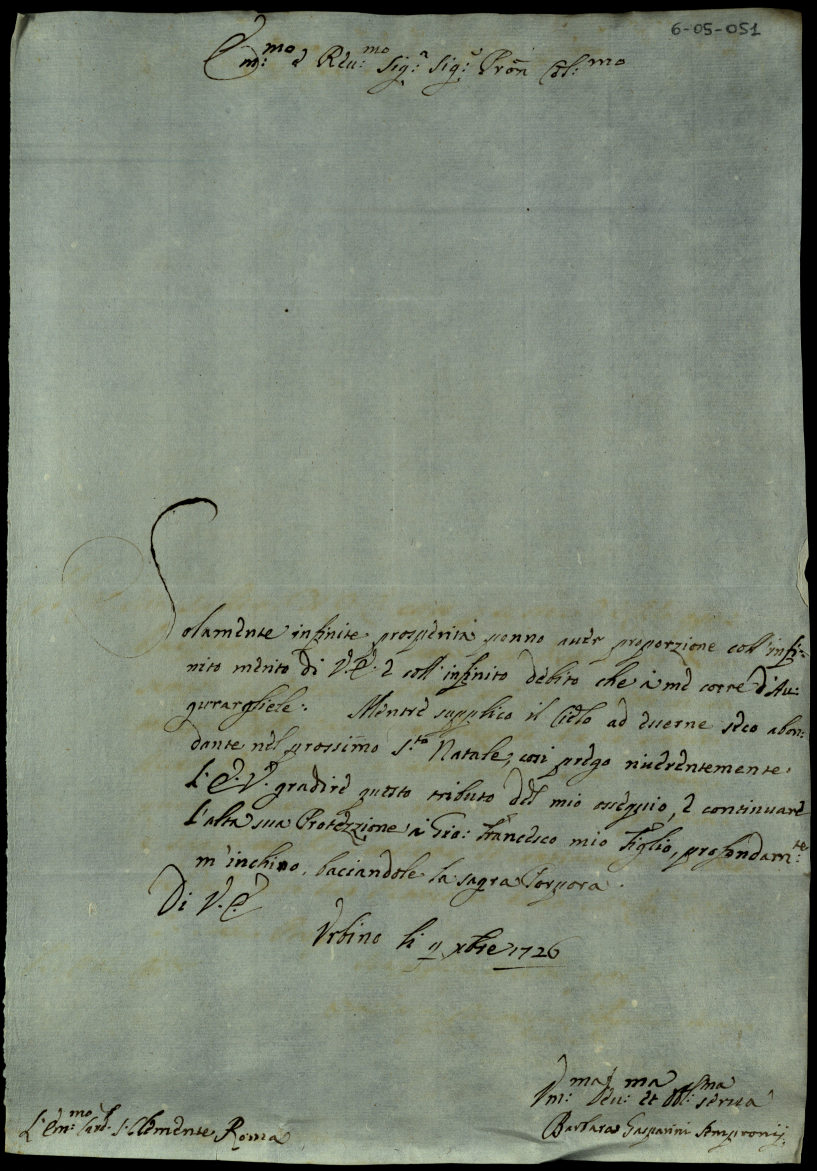 6-05-051
Em:mo e Rev:mo Sig:r Sig:r Pron Col:mo
Solamente infinite prosperità ponno aver proporzione coll'infi:
nito merito di V.E. e coll'infinito debito che à me corre d'Au:
gurargliele. Mentre supplico il Cielo ad esserne seco abon:
dante nel prossimo S.to Natale, così prego riverentemente
l'E.V. gradire questo tributo del mio ossequio, e continuare
l'alta sua Protezzione à Gio: Francesco mio Figlio, profondam:te
m'inchino, baciandole la sagra Porpora.
Di V.E.
Urbino li 11 xbre 1726
Um:ma Dev:ma et Obl:ma serva
Barbara Gasparini Sempronij
L'Em:mo Card. S. Clemente Roma